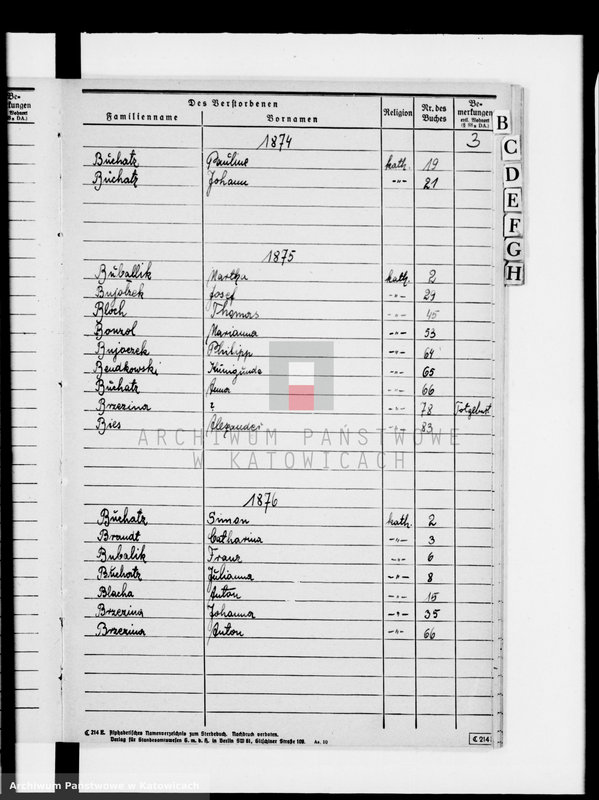 Be-
kungen
Des Verstorbenen
Familienname Vornamen Religion Nr. des Buches Be-merkungen
3
1874
Buchatz Pauline kath. 19
Buchatz Johann -"- 21
1875
Buballik Martha kath. 2
Bujoczek Josef -"- 29
Bloch Thomas -"- 45
Bonzol Marianna -"- 53
Bujoczek Philipp -"- 64
Bendkowski Kunigunde -"- 65
Buchatz Anna -"- 66
Brzezina ? -"- 78 Totgeburt
Bies Alexander -"- 83
1876
Buchatz Simon kath. 2
Brandt Catharina -"- 3
Bubalik Franz -"- 6
Buchatz Julianna -"- 8
Blacha Anton -"- 15
Brzezina Johanna -"- 35
Brzezina Anton -"- 66
B
C
D
E
F
G
H
ARCHIWUM PAŃSTWOWE
W KATOWICACH
C 214 E. Alphabetisches Namenverzeichnis zum Sterbebuch. Nachdruck verboten.
Verlag für Standesamtswesen G. m. b. H. in Berlin SW 61, Gitschiner Straße 109.
C 214
Archiwum Panstwowe w Katowicach